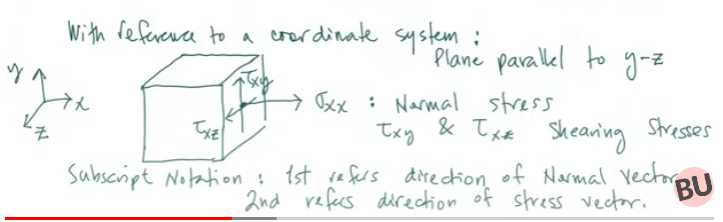 With reference to a coordinate system :
Plane parallel to y-z
y
x
z
τxy
τxz
σxx : Normal stress
τxy & τxz Shearing Stresses
Subscript Notation : 1st refers direction of Normal Vector
2nd refers direction of stress vector.
BU